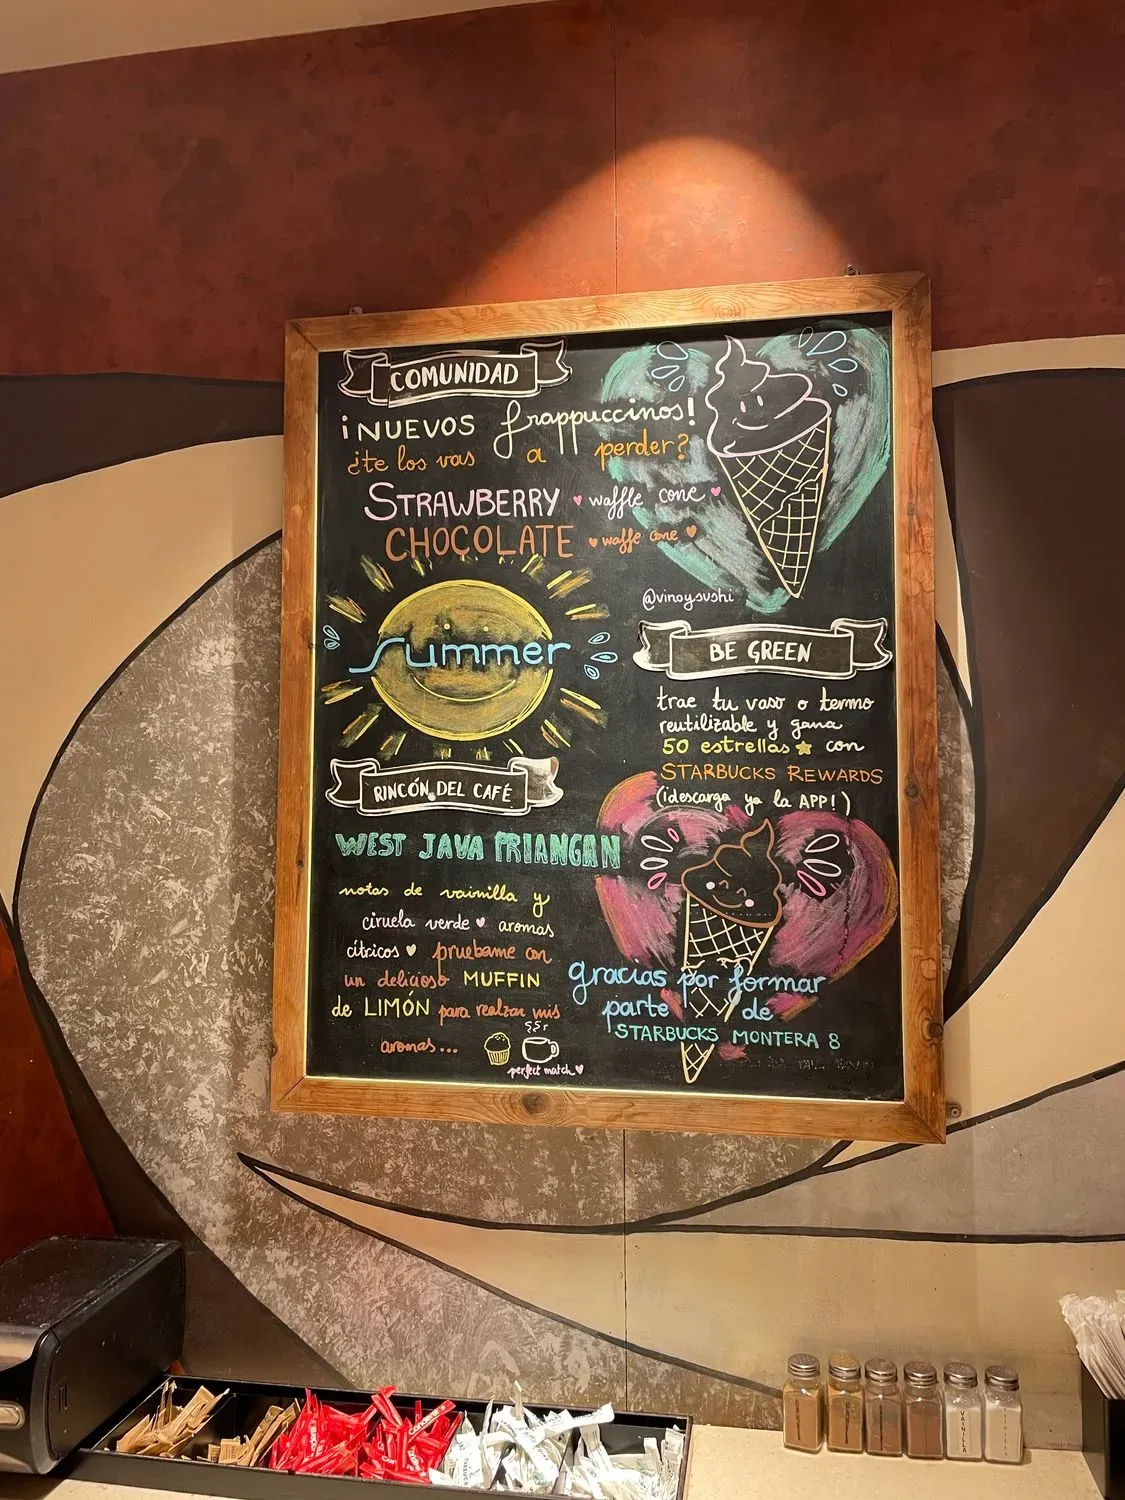 COMUNIDAD
¡NUEVOS frappuccinos!
¿te los vas a perder?
STRAWBERRY waffle cone
CHOCOLATE waffe cone
summer
@vinoysushi
BE GREEN
trae tu vaso o termo
reutilizable y gana
50 estrellas con
STARBUCKS REWARDS
(¡descarga ya la APP!)
RINCÓN DEL CAFÉ
WEST JAVA PRIANGAN
notas de vainilla y
ciruela verde aromas
cítricos pruebame con
un delicioso MUFFIN
de LIMÓN para realzar mis
aromas...
perfect match
gracias por formar
parte de
STARBUCKS MONTERA 8